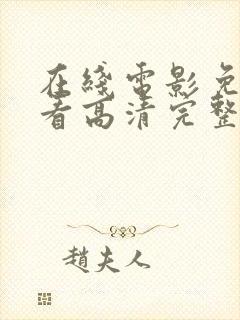 在綫電影免
看高清完整
趙夫人